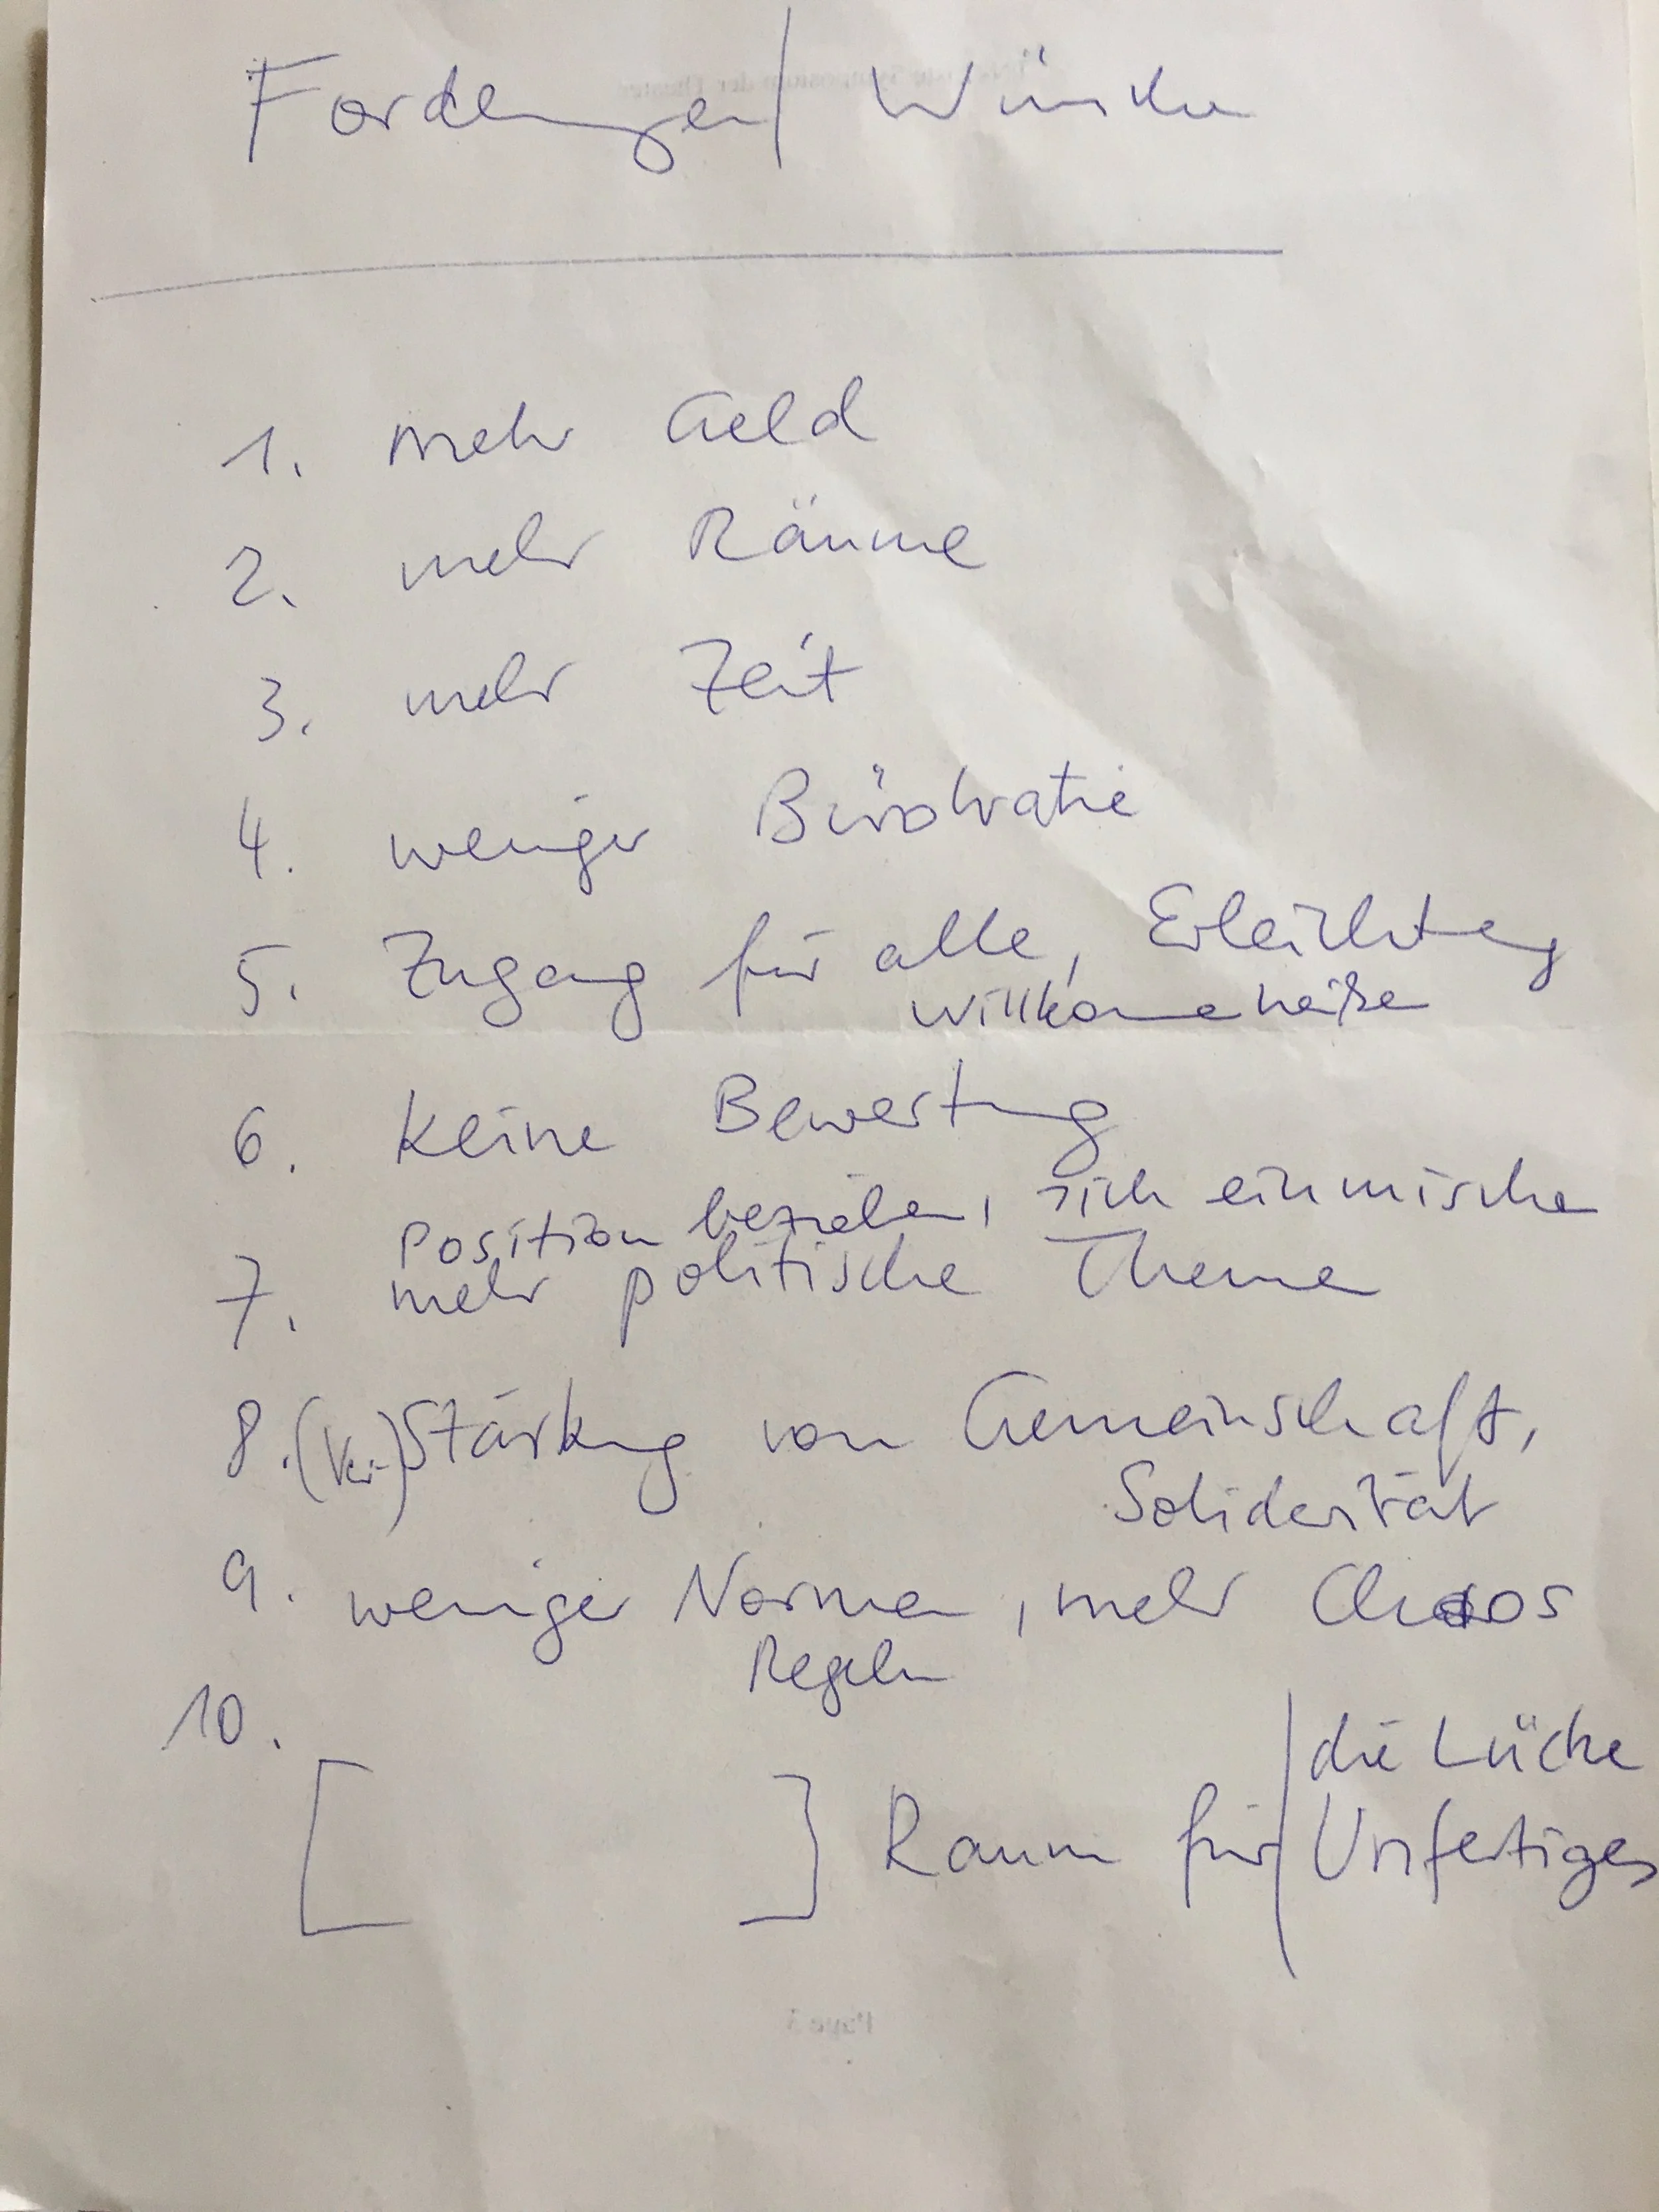 Forderungen / Wünsche
1. mehr Geld
2. mehr Räume
3. mehr Zeit
4. weniger Bürokratie
5. Zugang für alle, Erleichterung
willkommen heißen
6. keine Bewertung
Position beziehen, sich einmischen
7. mehr politische Themen
8. (Ver-) Stärkung von Gemeinschaft,
Solidarität
9. weniger Normen, mehr Chaos
Regeln
10.
[ ] Raum für | die Lücke
Unfertiges
Page 3